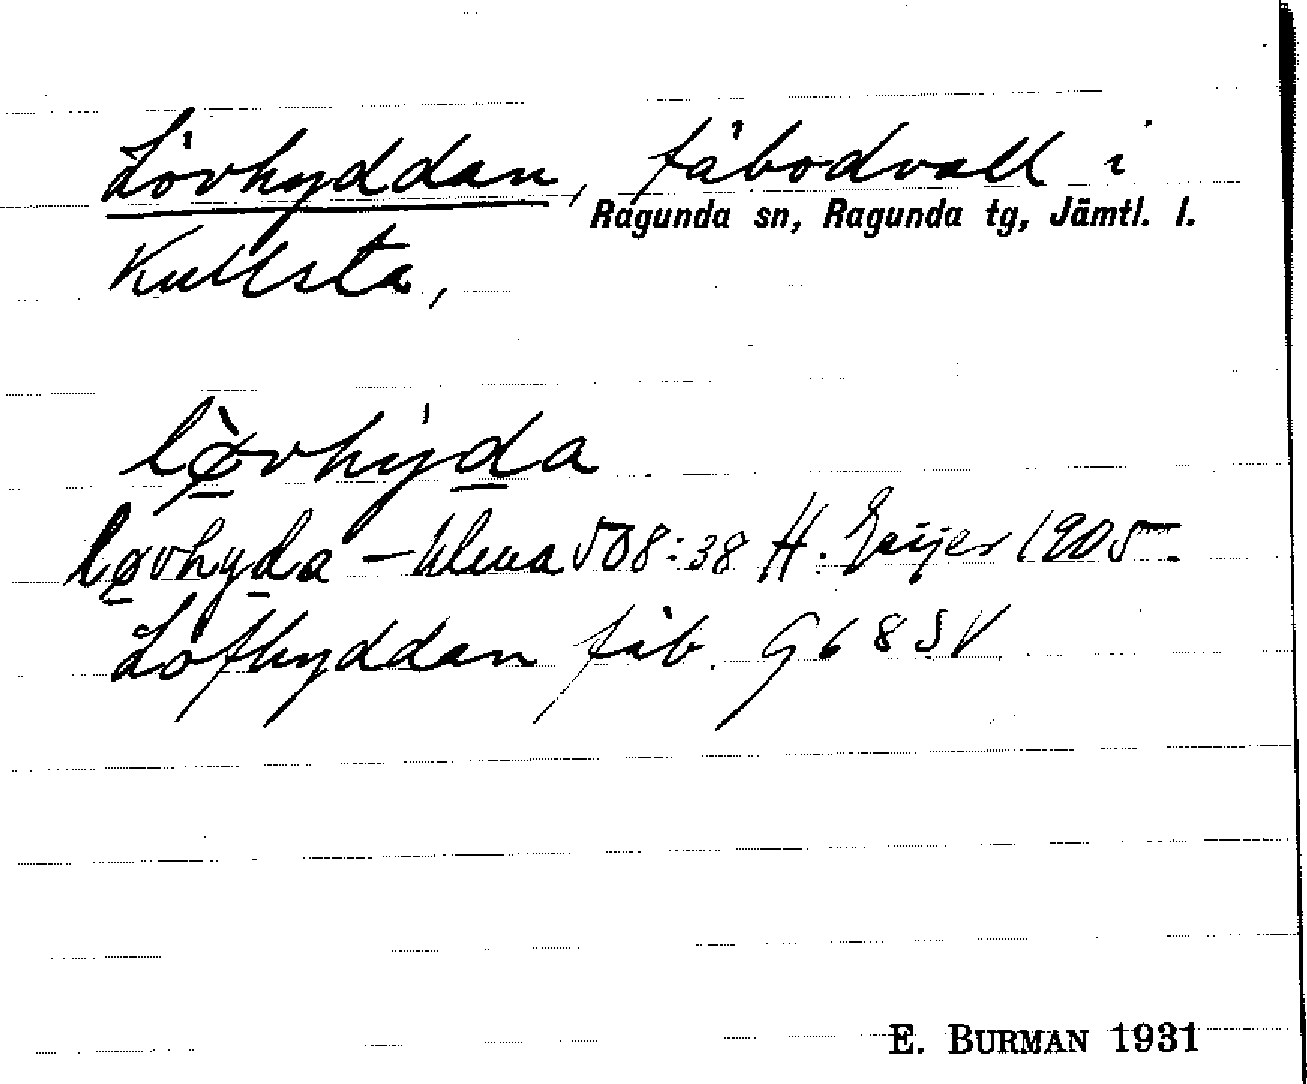 Lövhyddan, fäbodvall i
Ragunda sn, Ragunda tg, Jämtl. l.
Kullsta,
lø̀vhýda
løvhyda – Ulma 508:38 H. Geijer 1905.
Löfhyddan fäb. G 68 SV
E. BURMAN 1931